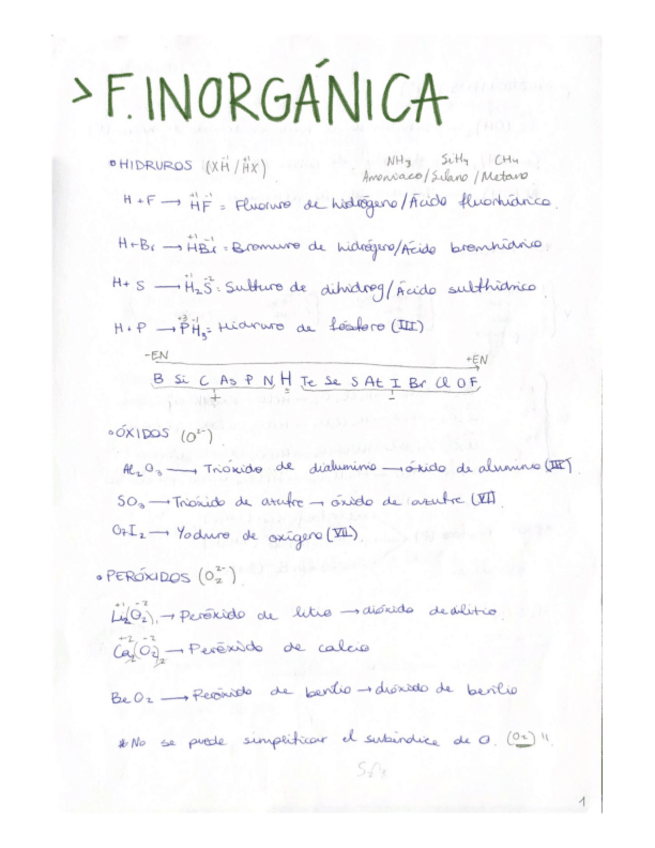 > F. INORGÁNICA
• HIDRUROS (XH / HX) NH3 SiH4 CH4
+1 -1 Amoniaco / Silano / Metano
H + F → HF = Fluoruro de hidrógeno / Ácido fluorhídrico
H + Br → HBr = Bromuro de hidrógeno / Ácido bromhídrico
H + S → H2S = Sulfuro de dihidrog / Ácido sulfhídrico
H + P → PH3 = Hidruro de fósforo (III)
-EN +EN
B Si C As P N H Te Se S At I Br Cl O F
+ -
• ÓXIDOS (O²⁻)
Al2O3 → Trióxido de dialuminio → óxido de aluminio (III)
SO3 → Trióxido de azufre → óxido de azufre (VI)
O7I2 → Yoduro de oxígeno (VII)
• PERÓXIDOS (O2²⁻)
Li2(O2), → Peróxido de litio → dióxido de dilitio
Ca2(O2)2 → Peróxido de calcio
BeO2 → Peróxido de berilio → dióxido de berilio
* No se puede simplificar el subíndice de O. (O2) "
1